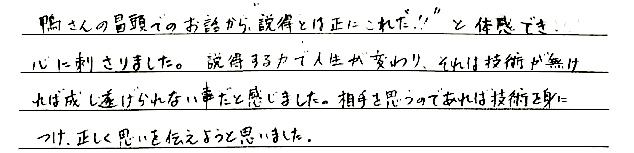 鴨さんの冒頭でのお話から、"説得とは正にこれだ!!"と体感でき、
心に刺さりました。説得する力で人生が変わり、それは技術が無け
れば成し遂げられない事だと感じました。相手を思うのであれば技術を身に
つけ、正しく思いを伝えようと思いました。